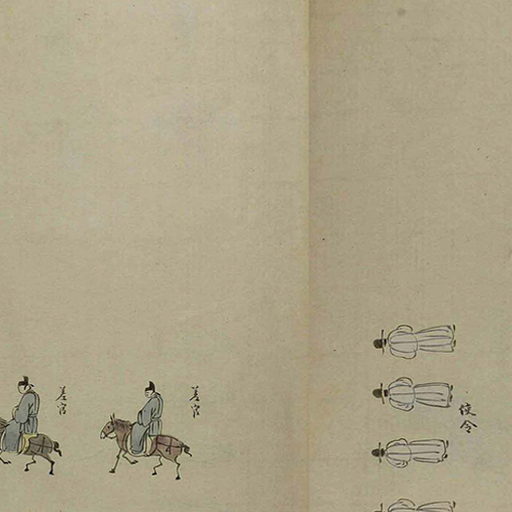 使令
差官
差官